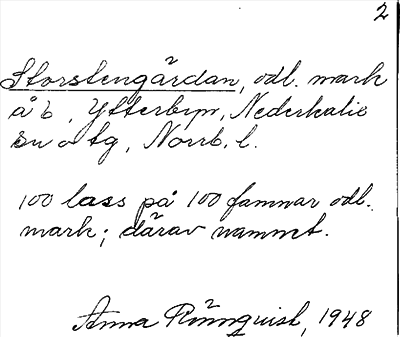 2
Storstengärdan, odl. mark
å b, Ytterbyn, Nederkalix
sn o tg, Norrb. l.
100 lass på 100 famnar odl.
mark; därav namnet.
Anna Rönnquist, 1948